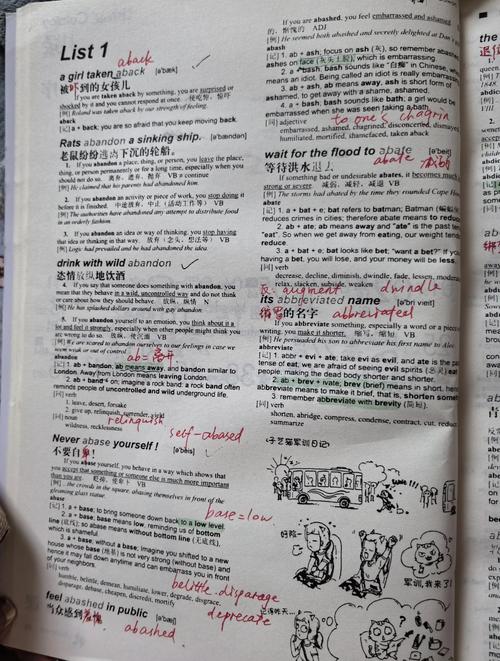 List 1
aback
a girl taken aback [ə'bæk]
被吓到的女孩儿
If you are taken aback by something, you are surprised or
shocked by it and you cannot respond at once.
[例] Roland was taken aback by our strength of feeling.
[记] a + back: you are so afraid that you keep moving back.
Rats abandon a sinking ship. [ə'bændən]
老鼠纷纷逃离下沉的轮船。
1. If you abandon a place, thing, or person, you leave the place,
thing, or person permanently or for a long time, especially when you
should not do so. 离弃，遗弃，抛弃 VB
[例] He claimed that his parents had abandoned him.
2. If you abandon an activity or piece of work, you stop doing it
before it is finished. 中途放弃，中止（活动工作等） VB
[例] The authorities have abandoned any attempt to distribute food
in an orderly fashion.
3. If you abandon an idea or way of thinking, you stop having
that idea or thinking in that way. 放弃（念头、想法等） VB
[例] Logic had prevailed and he had abandoned the idea.
drink with wild abandon
恣情放纵地饮酒
4. If you say that someone does something with abandon, you
mean that they behave in a wild, uncontrolled way and do not think
or care about how they should behave. 放纵，放任 N
[例] He has splashed dollars around with gay abandon.
5. If you abandon yourself to an emotion, you think about it a
lot and feel it strongly, especially when other people might think you
are wrong to do so. VB
[例] We are scared to abandon ourselves to our feelings in case we
seem weak or out of control.
ab=离开
abandon
[记] 1. ab + bandon; ab means away, and bandon similar to
London. Away from London means leaving London.
2. a + band + on; imagine a rock band: a rock band often
reminds people of uncontrolled and wild underground life.
[同] verb
1. leave, desert, forsake
2. give up, relinquish, surrender, yield
noun
wildness, recklessness
relinquish
self-abased
Never abase yourself ! [ə'beɪs]
不要自卑！
If you abase yourself, you behave in a way which shows that
you accept that something or someone else is much more important
than you are. VB
[例] ...the crowds in the square, abasing themselves in front of the
gleaming statue.
base=low
abase
[记] 1. a + base; to bring someone down back to a low level.
2. a + base; base means low, reminding us of bottom
line (底线); so abase means without bottom line (无底线),
which is shameful.
3. a + base; without a base; imagine you shifted to a new
house whose base (地基) is not very strong (without base) and
hence it may fall down anytime and can embarrass you in front
of your neighbors.
[同] verb
humble, belittle, demean, humiliate, lower, degrade, disgrace,
disparage, debase, cheapen, discredit, mortify
belittle disparage
deprecate
feel abashed in public [ə'bæʃt]
当众感到羞愧
abashed
If you are abashed, you feel embarrassed and ashamed.
ADJ
[例] He seemed both abashed and secretly delighted at Dan's
abash
[记] 1. ab + ash; focus on ash (灰), so remember abash
ashes on face (灰头土脸), which is embarrassing.
2. a + bash; bash sounds like in Chinese, which
means an idiot. Being called an idiot is really embarrassing.
3. ab + ash; ab means away, ash is short form of
ashamed, to get away with a shame, ashamed.
4. a + bash; bash sounds like bath; a girl would be
embarrassed when she was seen taking a bath.
[同] adjective
embarrassed, ashamed, chagrined, disconcerted, dismayed,
humiliated, mortified, shamefaced, taken aback
to one's chagrin
wait for the flood to abate [ə'beɪt]
等待洪水退去
abate
If something bad or undesirable abates, it becomes much
strong or severe. 减弱，减轻，减退 VB
[例] The storms had abated by the time they rounded Cape Horn.
abate
[记] 1. a + bat + e; bat refers to batman: Batman
reduces crimes in cities; therefore abate means to reduce.
2. ab + ate; ab means away and "ate" is the past tense of
"eat". So when we get away from eating, our weight tends to
reduce.
3. a + bat + e; bat looks like bet; "want a bet?" If you are
having a bet, you will lose, and your money will be less.
[同] verb
decrease, decline, diminish, dwindle, fade, lessen, moderate,
relax, slacken, subside, weaken
反：augment
dwindle
its abbreviated name [ə'bri:vieɪt]
缩写的名字
abbreviated
If you abbreviate something, especially a word or a piece of
writing, you make it shorter. 缩写，缩短 VB
[例] He persuaded his son to abbreviate his first name to Alec.
abbreviate
[记] 1. abbr + evi + ate; take evi as evil, and ate is the past
tense of eat; we are afraid of seeing evil spirits (恶灵) eat
people, making the dead body shorter and shorter.
2. ab + brev + iate; brev (brief) means in short, hence
abbreviate means to make it brief, that is, shorten something.
3. remember abbreviate with brevity (简短).
[同] verb
shorten, abridge, compress, condense, contract, cut, reduce,
summarize
子艺猫军训日记
好险…
军训,我来了!
记得昨天…